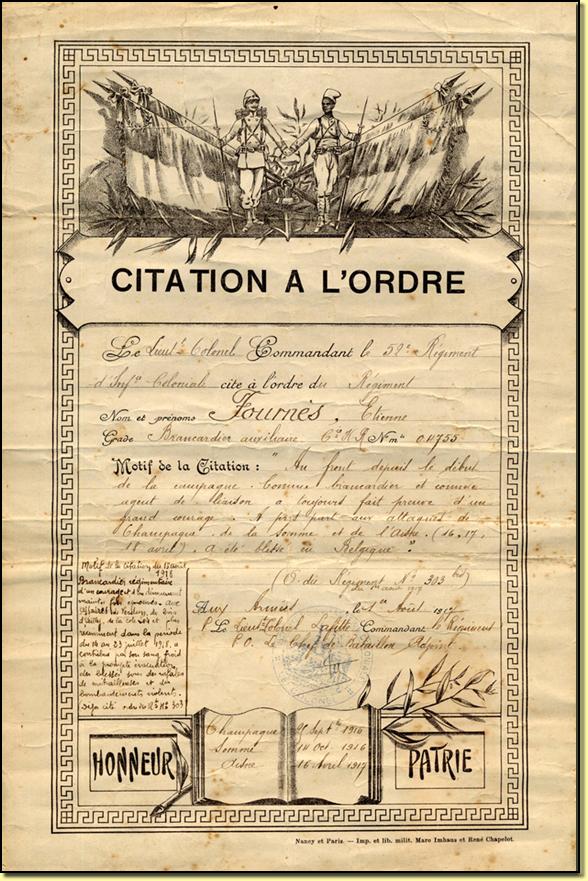 CITATION A L'ORDRE
Le Lieut.t Colonel Commandant le 52e Régiment
d'Inf.ie Coloniale cite à l'ordre du Régiment
Nom et prénoms Fournès, Etienne
Grade Brancardier auxiliaire Cie H.R. N° Mle 04755
Motif de la Citation : " Au front depuis le début
de la campagne. Comme brancardier et comme
agent de liaison a toujours fait preuve d'un
grand courage. A pris part aux attaques de
Champagne, de la Somme et de l'Aisne. (16, 17,
18 avril). A été blessé en Belgique. "
(O. du Régiment N° 303 bis)
Aux Armées, le 1er Août 1917
P. Le Lieut. Colonel Lafitte Commandant le Régiment
P.O. Le Chef de Bataillon Adjoint
Motif de la citation du 13 août
1918
Brancardier régimentaire
d'un courage et d'un dévouement
maintes fois éprouvés aux
affaires de Verdun, du Bois
et plus
récemment dans la période
du 14 au 23 juillet 1918, a
contribué par son sang froid
à la prompte évacuation
des blessés sous des rafales
de mitrailleuses et des
bombardements violents.
Déjà cité ordre du Rt N° 303
Champagne 25 Septbre 1915
Somme 14 Oct. 1916
Aisne 16 Avril 1917
HONNEUR
PATRIE
Nancy et Paris. — Imp. et lib. milit. Marc Imhaus et René Chapelot.